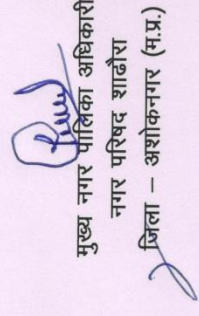 मुख्य नगर पालिका अधिकारी
नगर परिषद शाढौरा
जिला – अशोकनगर (म.प्र.)